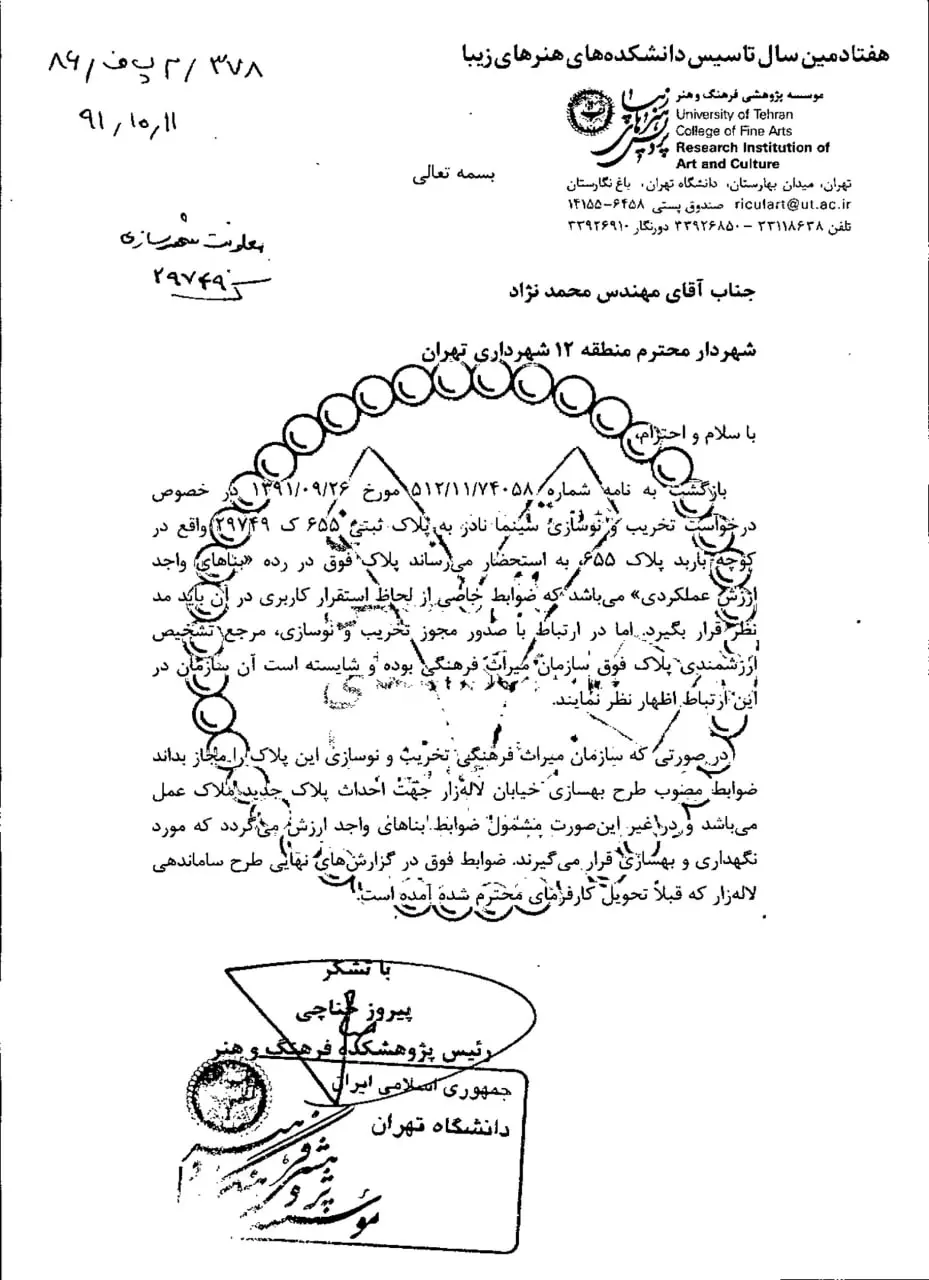 هفتادمین سال تاسیس دانشکده‌های هنرهای زیبا
۸۶/پ ف ۲/۳۷۸
۹۱/۱۰/۱۱
موسسه پژوهشی فرهنگ و هنر
University of Tehran
College of Fine Arts
Research Institution of
Art and Culture
تهران، میدان بهارستان، دانشگاه تهران، باغ نگارستان
صندوق پستی ۶۴۵۸-۱۴۱۵۵ ricufart@ut.ac.ir
تلفن ۳۳۱۱۸۶۳۸ - ۳۳۹۲۶۸۵۰ دورنگار ۳۳۹۲۶۹۱۰
بسمه تعالی
معاونت شهرسازی
۲۹۷۴۹
جناب آقای مهندس محمد نژاد
شهردار محترم منطقه ۱۲ شهرداری تهران
با سلام و احترام،
بازگشت به نامه شماره ۵۱۲/۱۱/۷۴۰۵۸ مورخ ۱۳۹۱/۰۹/۲۶ در خصوص
درخواست تخریب و نوسازی سینما نادر به پلاک ثبتی ۶۵۵ ک ۲۹۷۴۹ واقع در
کوچه باربد پلاک ۶۵۵، به استحضار می‌رساند پلاک فوق در رده «بناهای واجد
ارزش عملکردی» می‌باشد که ضوابط خاصی از لحاظ استقرار کاربری در آن باید مد
نظر قرار بگیرد. اما در ارتباط با صدور مجوز تخریب و نوسازی، مرجع تشخیص
ارزشمندی پلاک فوق سازمان میراث فرهنگی بوده و شایسته است آن سازمان در
این ارتباط اظهار نظر نمایند.
در صورتی که سازمان میراث فرهنگی تخریب و نوسازی این پلاک را مجاز بداند
ضوابط مصوب طرح بهسازی خیابان لاله‌زار جهت احداث پلاک جدید ملاک عمل
می‌باشد و در غیر این‌صورت مشمول ضوابط بناهای واجد ارزش می‌گردد که مورد
نگهداری و بهسازی قرار می‌گیرند. ضوابط فوق در گزارش‌های نهایی طرح ساماندهی
لاله‌زار که قبلاً تحویل کارفرمای محترم شده آمده است.
با تشکر
پیروز حناچی
رئیس پژوهشکده فرهنگ و هنر
جمهوری اسلامی ایران
دانشگاه تهران